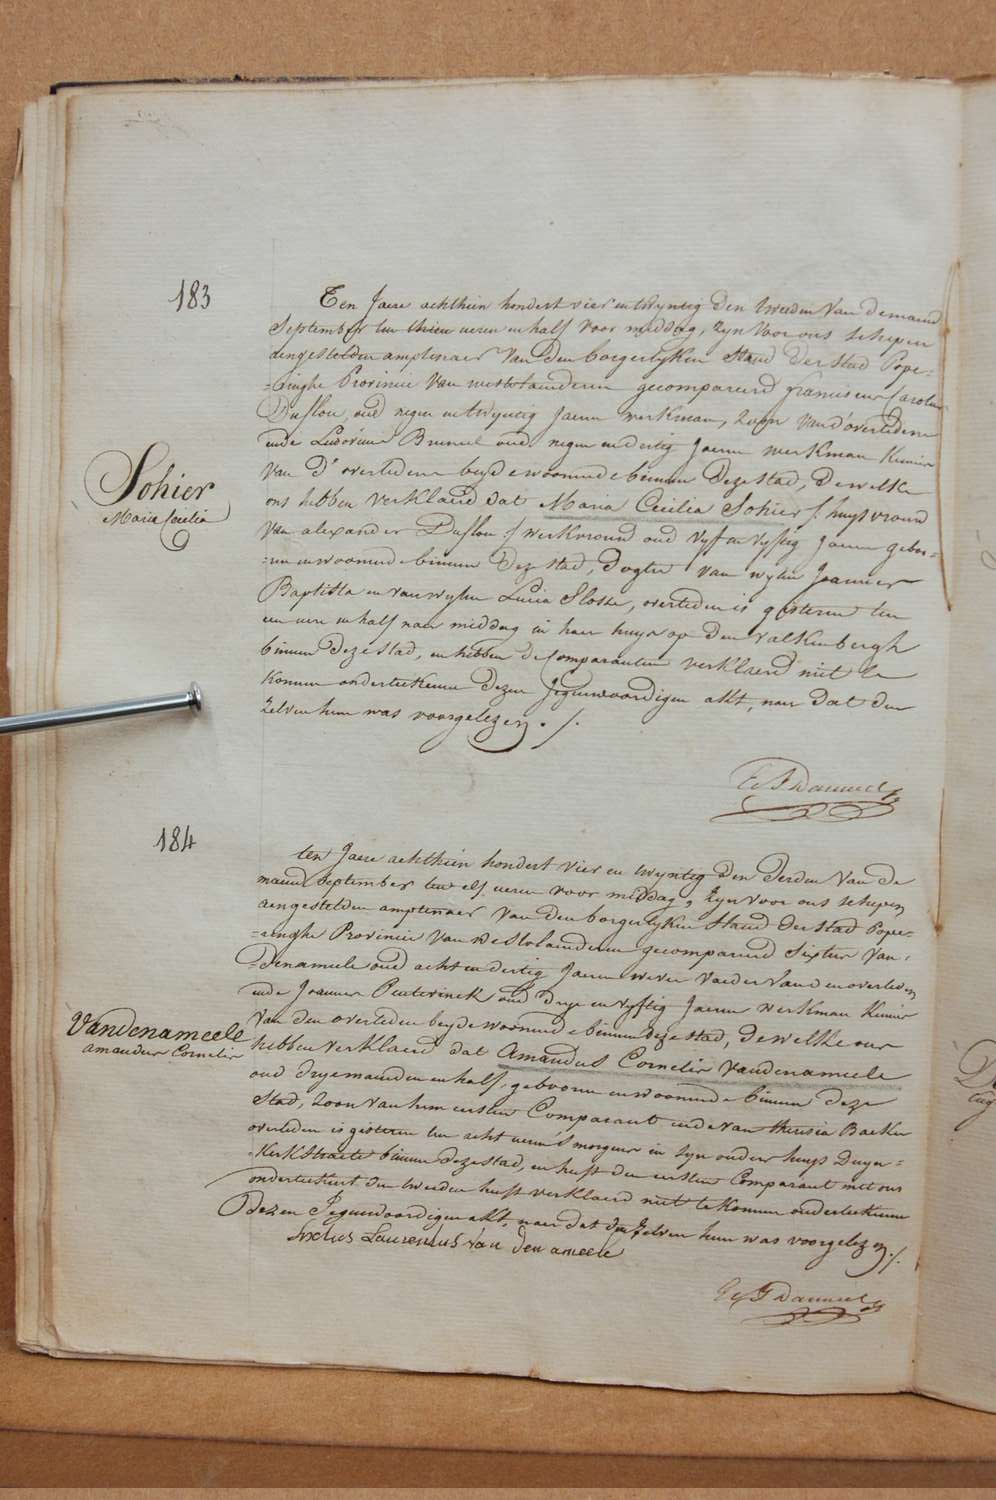 183
Ten Jaere achthien hondert vier en twyntig den tweeden van de maend
September ten thien ueren en half voor middag, zyn voor ons schepen
aengestelden amptenaer van den borgerlyken Staud der stad Pope-
-ringhe Provincie van westvlaenderen gecompareerd franciscus Carolus
Duflou, oud negen en twyntig Jaeren werkman, zoon van d'overledene
ende Ludovicus Bruneel oud negen en dertig Jaeren werkman kennis
van d' overledene beyde woonende binnen deze stad, dewelke
ons hebben verklaerd dat Maria Cecilia Sohier /: huysvrouw
van alexander Duflou :/ werkvrouw oud vyf en vyftig Jaeren gebor-
-en en woonende binnen deze stad, dogter van wylen Joannes
Baptista en van wylen Lucia Slosse, overleden is gisteren ten
een uere en half naer middag in haer huys op den valkenbergh
binnen deze stad, en hebben de Comparanten verklaerd niet te
konnen onderteekenen dezen Jegenwoordigen akt, naer dat den
zelven hun was voorgelezen ./.
Sohier
Maria Cecilia
184
ten Jaere achthien hondert vier en twyntig den derden van de
maend September ten elf ueren voor middag, zyn voor ons schepen
aengestelden amptenaer van den borgerlyken Staud der stad Pope-
-ringhe Provincie van Westvlaenderen gecompareerd Sixtus Van-
-Denameele oud acht en dertig Jaeren wever vaeder van den overleden
ende Joannes Peuterinck oud drye en vyftig Jaeren werkman kennis
van den overleden beyde woonende binnen deze stad, dewelke ons
hebben verklaerd dat Amandus Cornelis Vandenameele
oud drye maenden en half, gebooren en woonende binnen deze
Stad, zoon van hem eersten Comparant ende van theresia Backer
overleden is gisteren ten acht ueren 's morgens in zyn ouders huys Duyn-
-kerkstraete binnen deze stad, en heeft den eersten Comparant met ons
onderteekent den tweeden heeft verklaerd niet te konnen onderteekenen
Dezen Jegenwoordigen akt, naer dat den zelven hun was voorgelezen ./.
Vandenameele
amandus Cornelis
Sixtus Laurentius Van den ameele